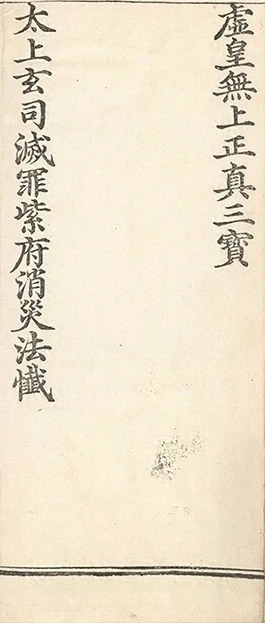 虛皇無上正真三寶
太上玄司滅罪紫府消災法懺